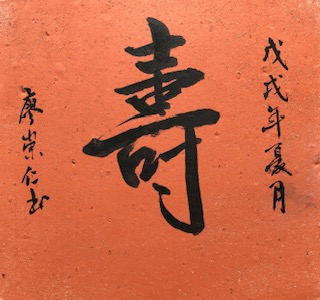 戊戌年夏月
壽
廖崇仁书